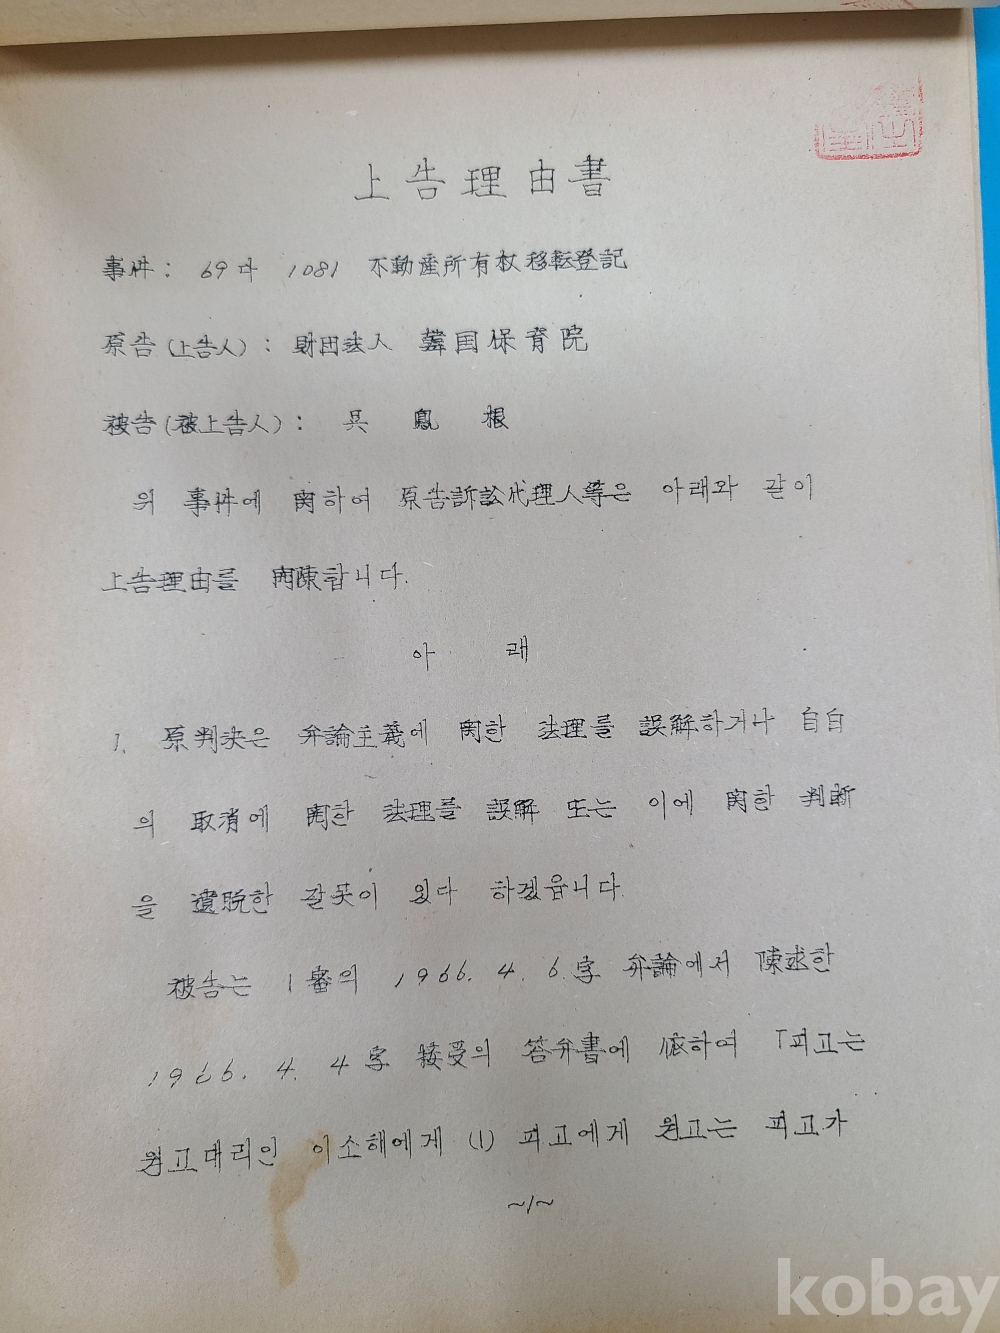 上告理由書
事件: 69다 1081 不動産所有权移転登記
原告(上告人): 財団法人 韓国保育院
被告(被上告人): 吳鳳根
위 事件에 関하여 原告訴訟代理人等은 아래와 같이
上告理由를 開陳합니다.
아래
1. 原判決은 弁論主義에 関한 法理를 誤解하거나 自白
의 取消에 関한 法理를 誤解 또는 이에 関한 判断
을 遺脫한 잘못이 있다 하겠읍니다.
被告는 1審의 1966. 4. 6.字 弁論에서 陳述한
1966. 4. 4字 接受의 答弁書에 依하여 「피고는
원고대리인 이소해에게 (1) 피고에게 원고는 피고가
~1~
kobay